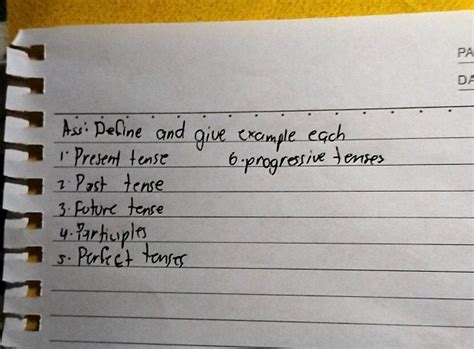 PA
DA
Ass: Define and give example each
1. Present tense 6. progressive tenses
2. Past tense
3. Future tense
4. Participles
5. Perfect tenses